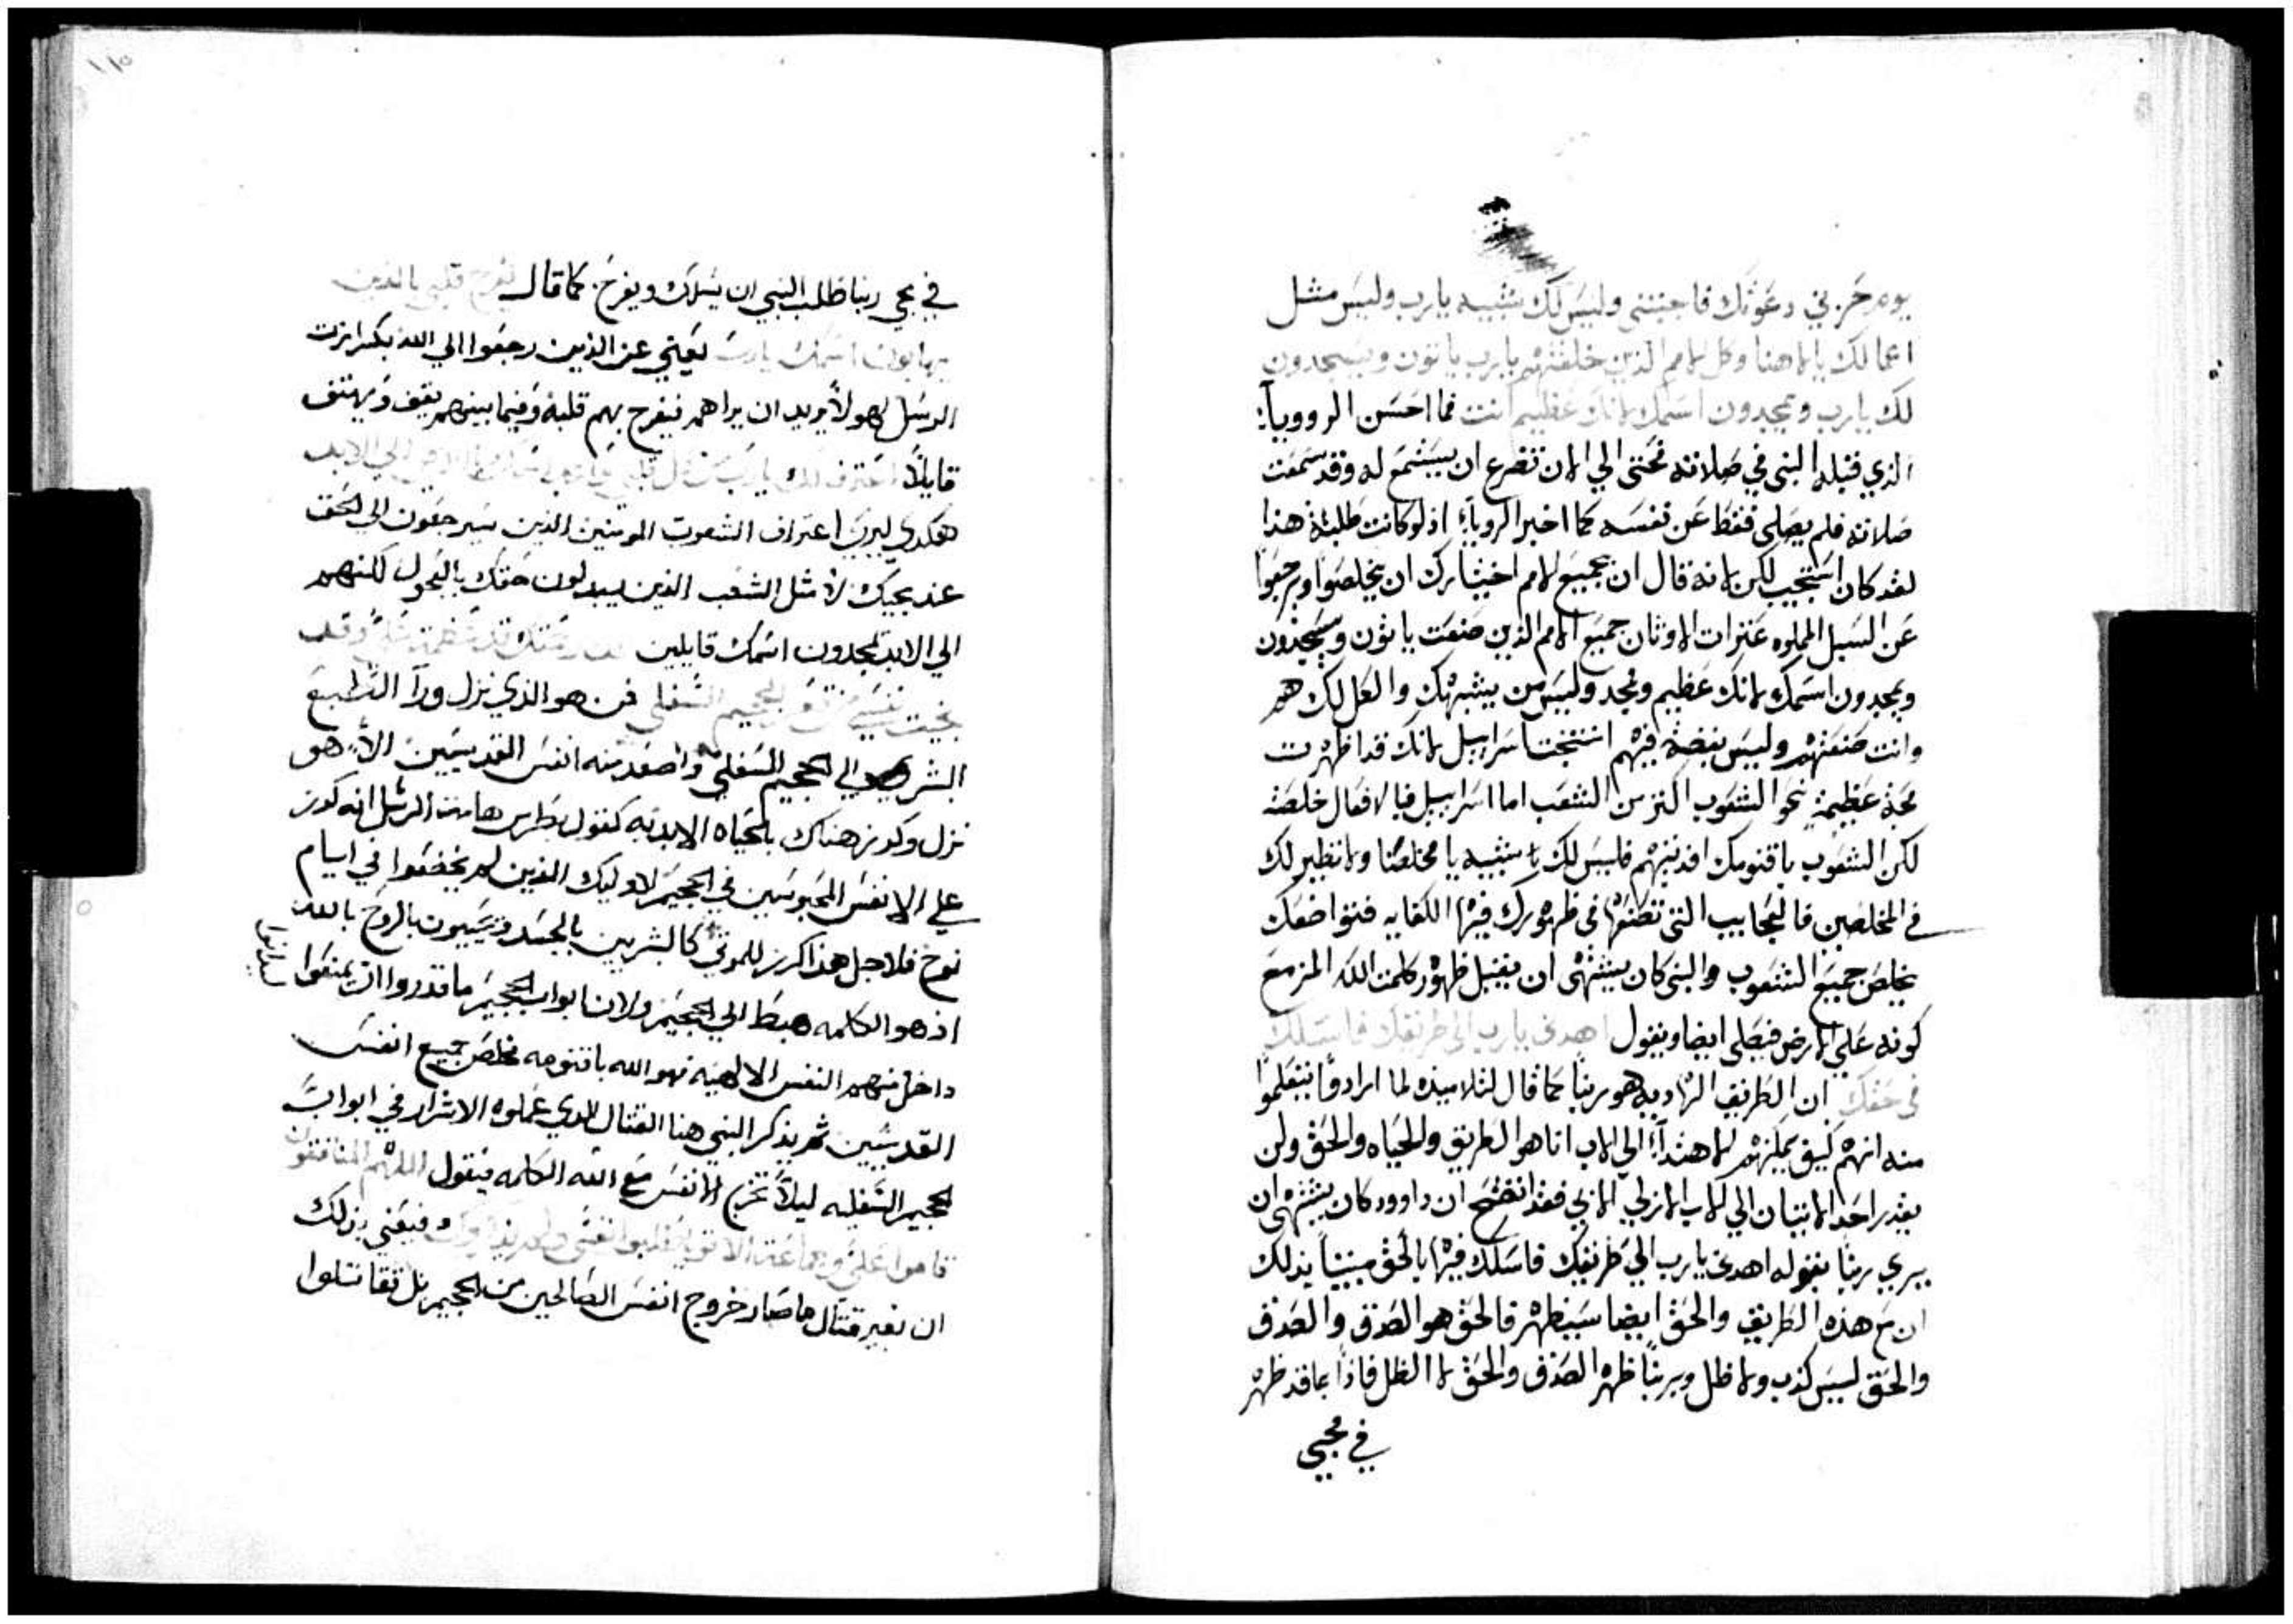 يوم حزني دعوتك فاجبتني وليس لك شبيه يارب وليس مثل
اعمالك يا الاهنا وكل الامم الذين خلقتهم يارب ياتون ويسجدون
لك يارب ويمجدون اسمك لانك عظيم انت فما احسن الروويآ
الذي قبله النبي في صلاته فحتى الي الان تضرع ان يستمع له وقد سمعت
صلاته فلم يصلي فقط عن نفسه كما اخبر الروياء اذ لو كانت طلبة هذا
لقد كان استجيب لكن لانه قال ان جميع الامم اخيثارك ان يخلصوا ويرجعوا
عن السبل المملوه عثرات الاوثان جميع الامم الذين صنعت ياتون ويسجدون
ويمجدون اسمك لانك عظيم ومجد وليس من يشبهك والعل لك هم
وانت صنعتهم وليس بغضة فيهم استجت اسراييل لانك قد اظهرت
محبة عظيمة نحو الشعوب اكثر من الشعب اما اسراييل فبالافعال خلصته
لكن الشعوب باقنومك افديتهم فليس لك شبيه يا مخلصنا ولا نظير لك
في المخلصين فالعجايب التي تصنعها في ظهورك فيها الكفايه فتواضعك
يخلص جميع الشعوب والنبي كان يشتهي ان يقبل ظهور كلمت الله المزمع
كونه علي الارض فيصلي ايضا ويقول اهدني يارب الي طريقك فاسلك
في حقك ان الطريق الهاديه هو ربنا كما قال لتلاميذه لما ارادوا يتعلموا
منه انهم كيف يمكنهم الاهتدآء الي الاب انا هو الطريق والحياه والحق ولن
يقدر احد الاتيان الي الاب الازلي الا بي فقد اتضح ان داوود كان يشتهي ان
يري ربنا بقوله اهدني يارب الي طريقك فاسلك فيها بالحق مبيناً بذلك
ان مع هذه الطريق والحق ايضا سيظهر فالحق هو الصدق والصدق
والحق ليس كذب ولا ظل وبربنا ظهر الصدق والحق لا الظل فاذا بما قد ظهر
في مجي
في مجي ربنا طلب النبي ان يسلك ويفرح كما قال ليفرح قلبي بالذين
يهابون اسمك يارب يعني عن الذين رجعوا الي الله بكرازت
الرسل لهولاء يريد ان يراهم فيفرح بهم قلبه وفيما بينهم يقف ويهتف
قايلاً اعترف لك يارب من كل قلبي الي الابد
هكدي ليري اعتراف الشعوب المومنين الذين سيرجعون الي الحق
عند مجيك لا مثل الشعب الذين يبدلون حقك بالعجل لكنهم
الي الابد يمجدون اسمك قايلين
نجيت نفسي من الجحيم السفلي فمن هو الذي نزل ورآ الطبع
البشري الي الجحيم السفلي واصعد منه انفس القديسين الا هو
نزل وكرز هناك بالحياه الابديه كقول بطرس هامت الرسل انه كرز
علي الانفس المحبوسين في الجحيم لاوليك الذين لم يخضعوا في ايام
نوح فلاجل هذا كرز للموتي كالبشريين بالجسد ويحييون بالروح بالله
اذ هو الكلمه هبط الي الجحيم ولان ابواب الجحيم ما قدروا ان يمنعوا
داخل منهم النفس الالهيه فهو الله باقنومه مخلص جميع انفس
القديسين ثم يذكر النبي هنا القتال الذي عملوه الاشرار في ابواب
الجحيم السفليه ليلاً تخرج الانفس مع الله الكلمه فيقول اللهم المنافقون
قاموا علي وجماعة الاقويا طلبوا نفسي ولم فيعني بذلك
ان بغير قتال ما صار خروج انفس الصالحين من الجحيم بل تقاتلوا